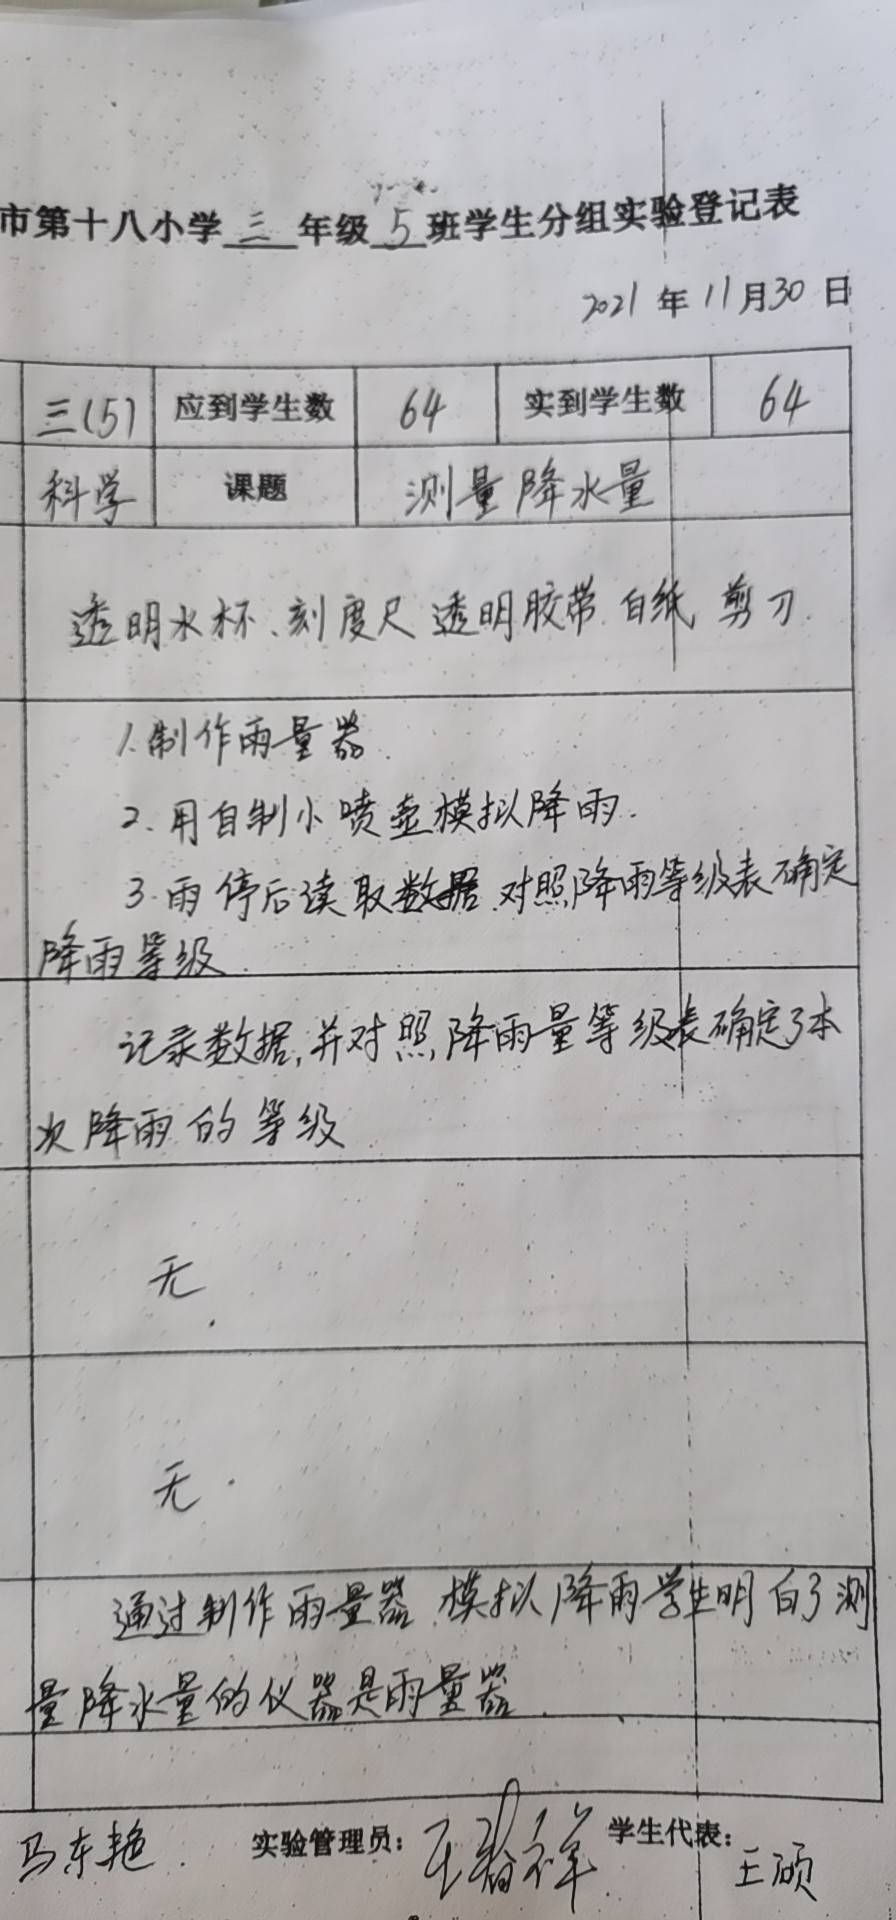 市第十八小学三年级5班学生分组实验登记表
2021年11月30日
三(5) 应到学生数 64 实到学生数 64
科学 课题 测量降水量
透明水杯、刻度尺 透明胶带 白纸 剪刀.
1.制作雨量器.
2.用自制小喷壶模拟降雨.
3.雨停后读取数据.对照降雨等级表确定
降雨等级.
记录数据,并对照降雨量等级表确定了本
次降雨的等级
无.
无.
通过制作雨量器.模拟降雨学生明白了测
量降水量的仪器是雨量器.
马东艳 实验管理员: 学生代表: 王硕